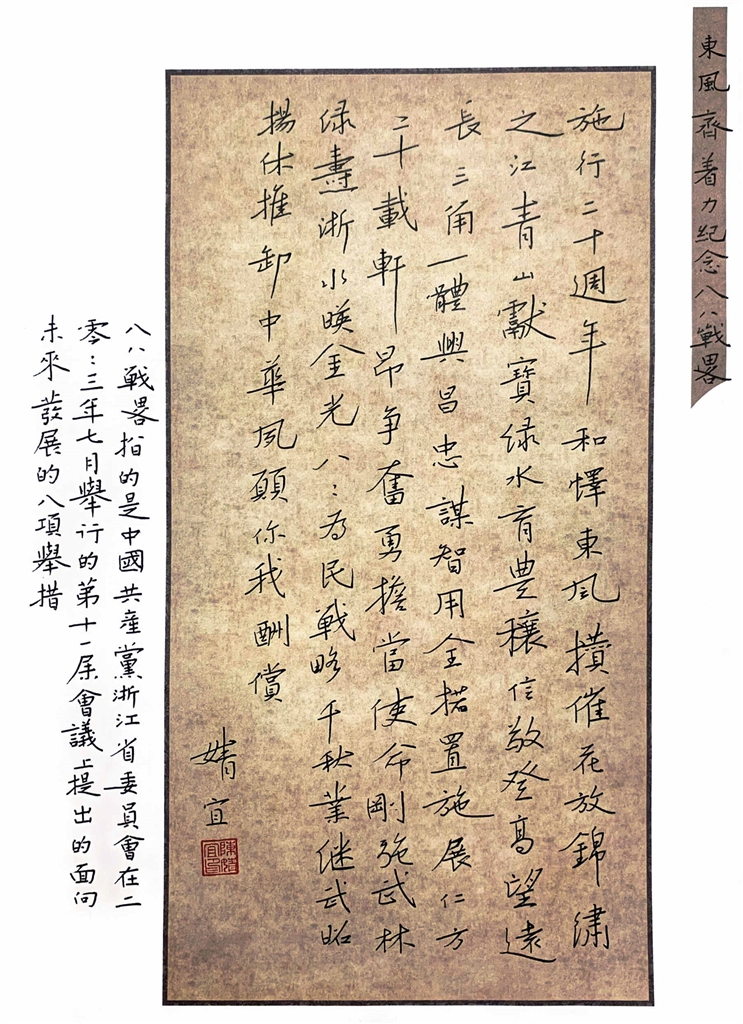 東風齊着力纪念八八戰畧
施行二十週年和懌東風攢催花放錦繡
之江青山獻寶绿水育豊穰信敬登高望遠
長三角一體興昌忠謀智用全措置施展仁方
二十載軒昂争奮勇擔當使命剛強武林
绿壽浙水暎金光八〻為民戰略千秋業继武昭
揚休推卸中華夙願你我酬償
婧宜
八八戰畧指的是中國共產黨浙江省委員會在二
零〻三年七月舉行的第十一届會議上提出的面向
未來發展的八項舉措